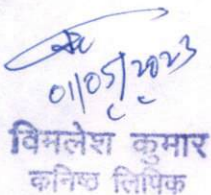 01/05/2023
विमलेश कुमार
कनिष्ठ लिपिक